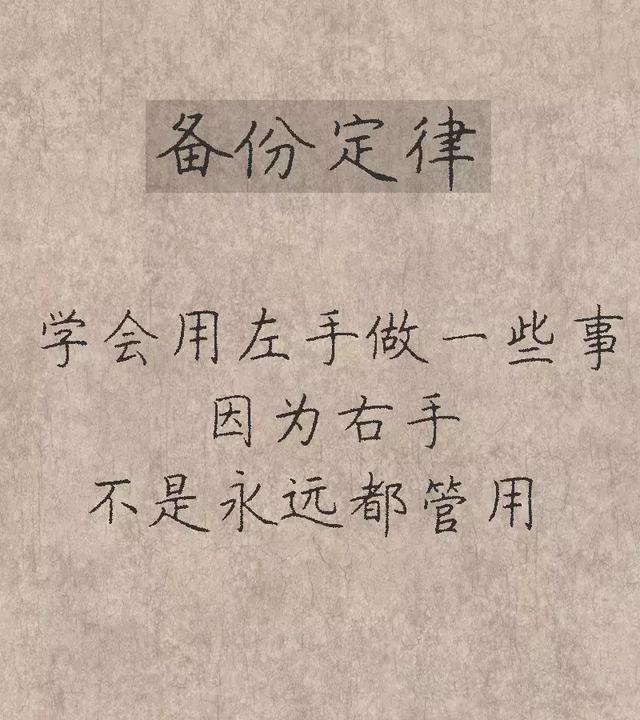 备份定律
学会用左手做一些事
因为右手
不是永远都管用